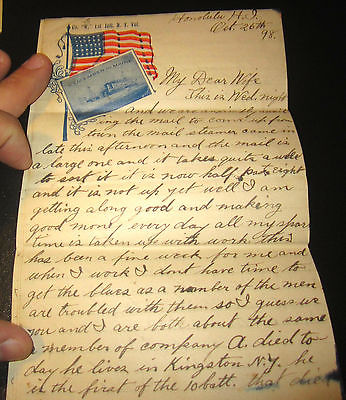 Co. "K" 1st Reg. N. Y. Vol.
Honolulu H.I
Oct. 26th
98.
MAINE
My Dear Wife
This is Wed. night
and we are
ing the mail to come up from
town the mail steamer came in
late this afternoon and the mail is
a large one and it takes quite a while
to sort it it is now half past eight
and it is not up yet well I am
getting along good and making
good money every day all my spare
time is taken up with work this
has been a fine week for me and
when I work I dont have time to
get the blues as a number of the men
are troubled with them so I guess we
you and I are both about the same
a member of company A. died to
day he lives in Kingston N.Y. he
is the first of the 1o batt. that died